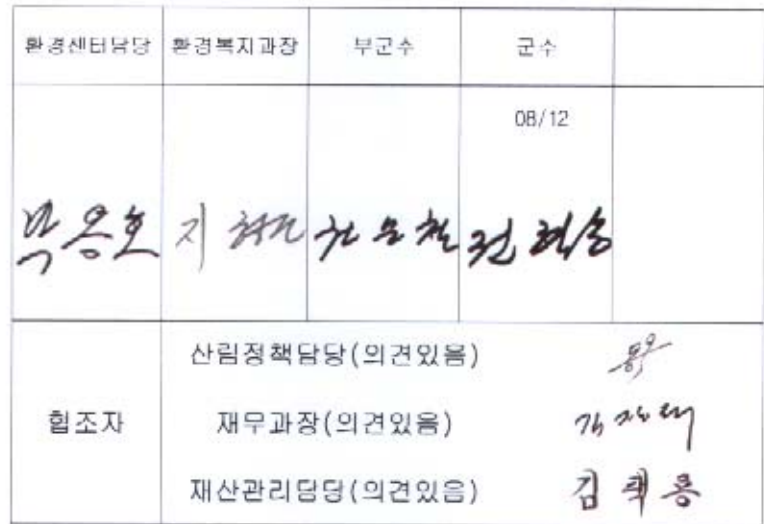 환경센터담당 환경복지과장 부군수 군수
08/12
박용호
산림정책담당(의견있음)
협조자 재무과장(의견있음)
재산관리담당(의견있음) 김택용